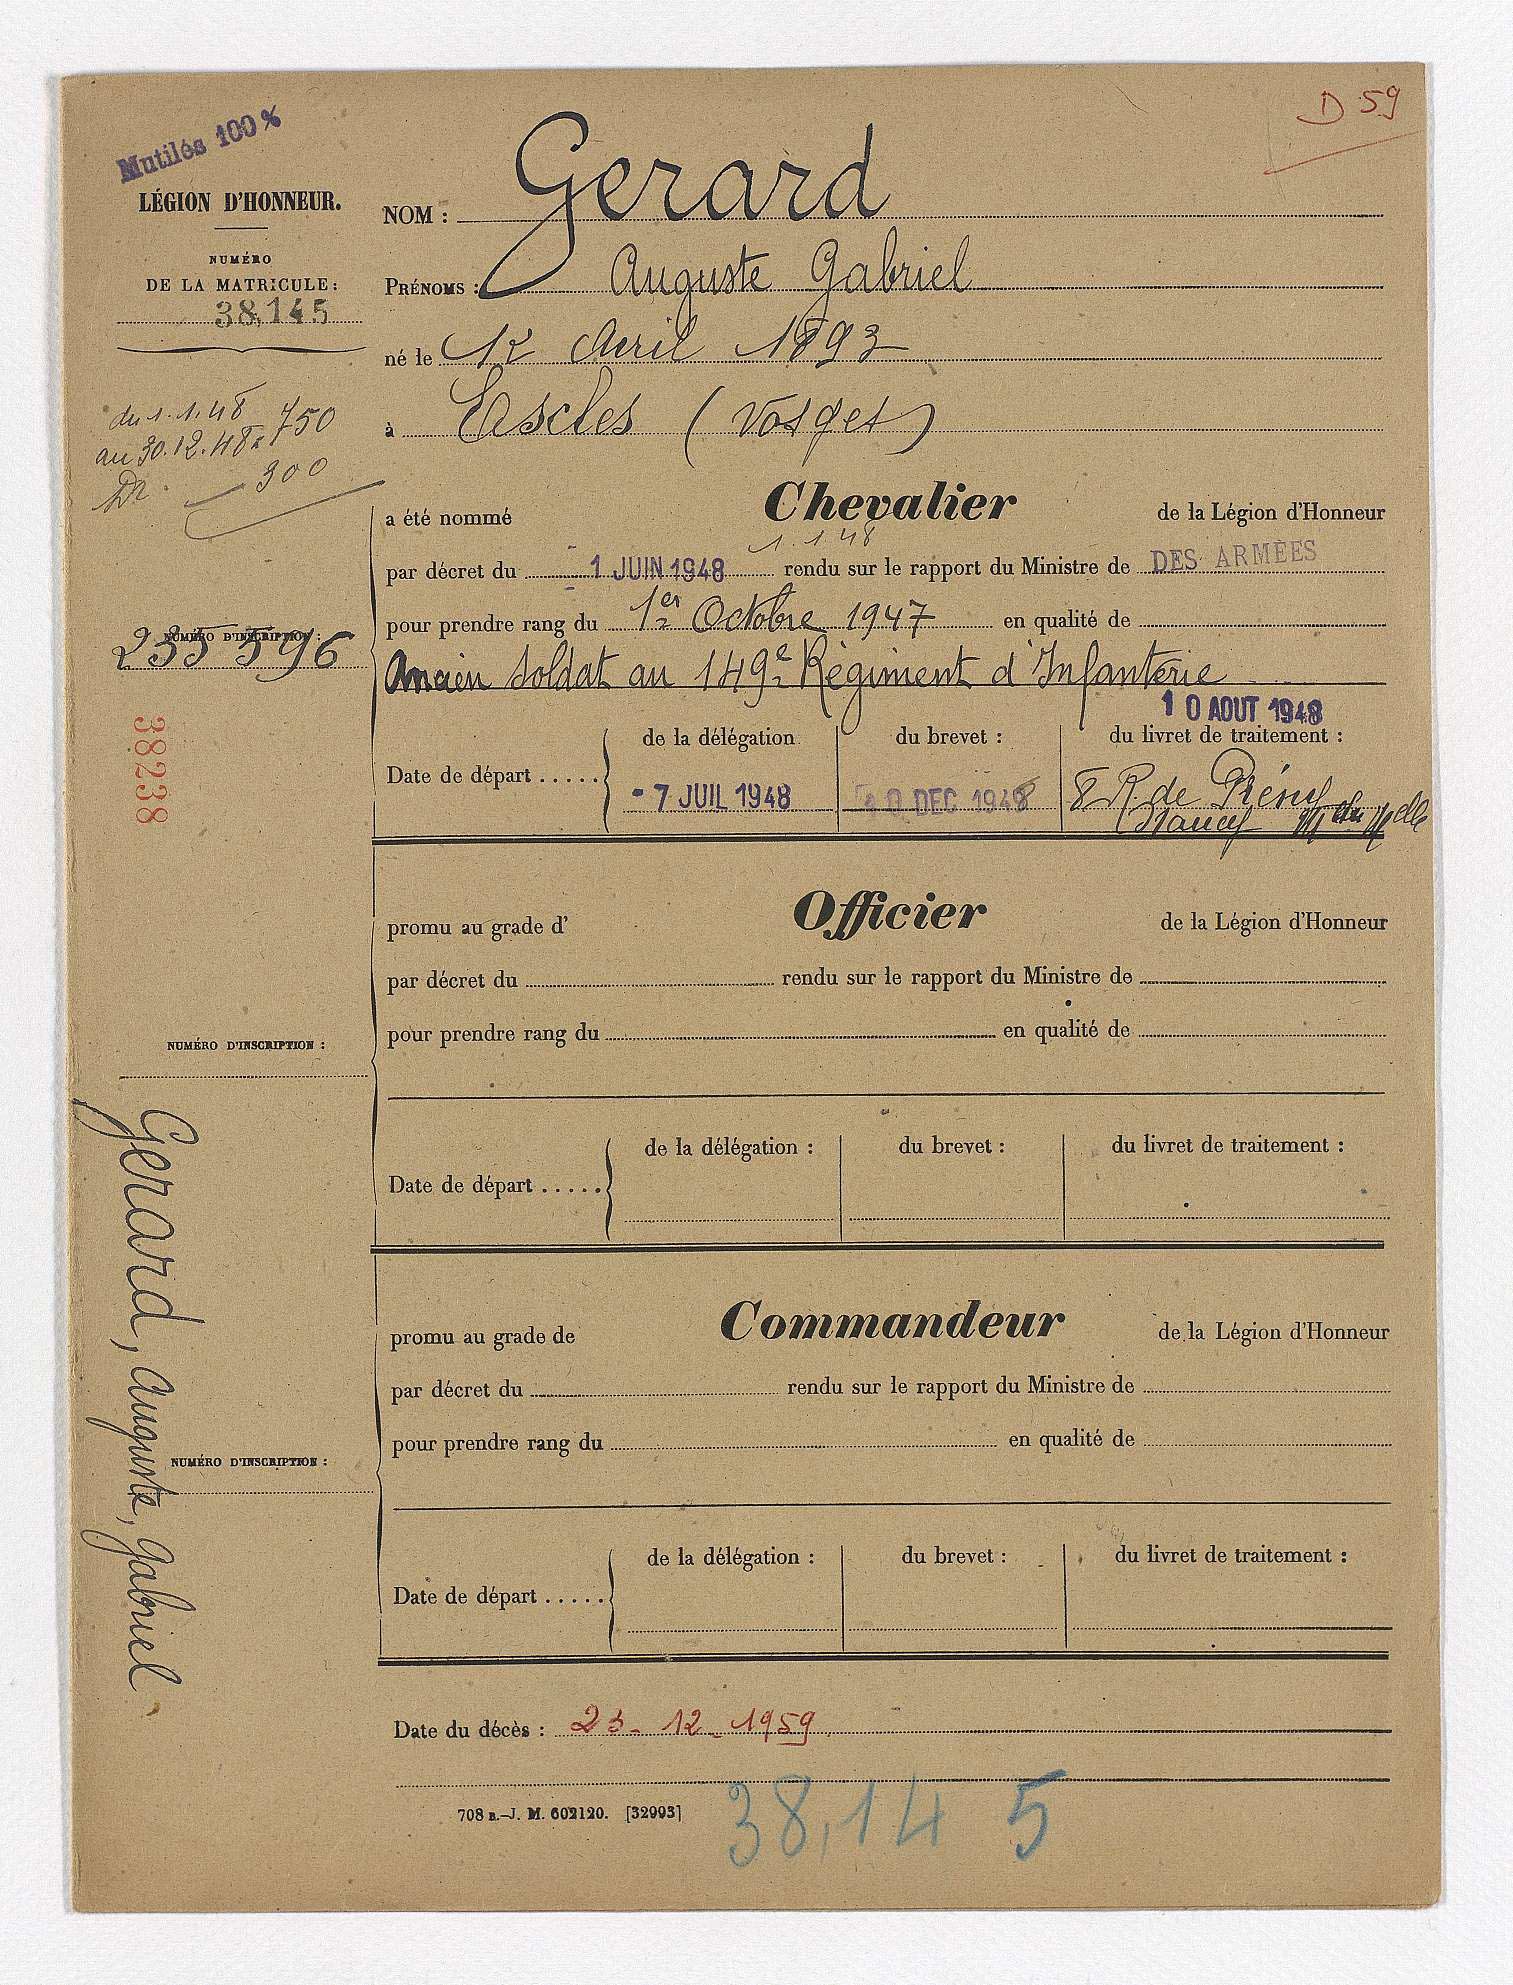 Mutilés 100%
D 59
LÉGION D'HONNEUR.
NUMÉRO
DE LA MATRICULE :
38,145
du 1.1.48
au 30.12.48 = 750
300
NOM : Gerard
PRÉNOMS : Auguste Gabriel
né le 12 Avril 1893
à Escles (Vosges)
a été nommé Chevalier de la Légion d'Honneur
1.1.48
par décret du 1 JUIN 1948 rendu sur le rapport du Ministre de DES ARMÉES
pour prendre rang du 1er Octobre 1947 en qualité de
Ancien Soldat au 149e Régiment d'Infanterie
NUMÉRO D'INSCRIPTION :
235596
38238
10 AOUT 1948
Date de départ ..... de la délégation du brevet : du livret de traitement :
-7 JUIL 1948 10 DEC 1948 8 R. de
Nancy M. de Mlle
promu au grade d' Officier de la Légion d'Honneur
par décret du rendu sur le rapport du Ministre de
pour prendre rang du en qualité de
NUMÉRO D'INSCRIPTION :
Date de départ ..... de la délégation : du brevet : du livret de traitement :
promu au grade de Commandeur de la Légion d'Honneur
par décret du rendu sur le rapport du Ministre de
pour prendre rang du en qualité de
NUMÉRO D'INSCRIPTION :
Date de départ ..... de la délégation : du brevet : du livret de traitement :
Gerard, Auguste, Gabriel
Date du décès : 23-12-1959
708 B.–J. M. 602120. [32993]
38,145